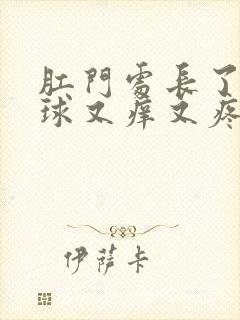 肛門處長了
球又痒又疼
伊薩卡